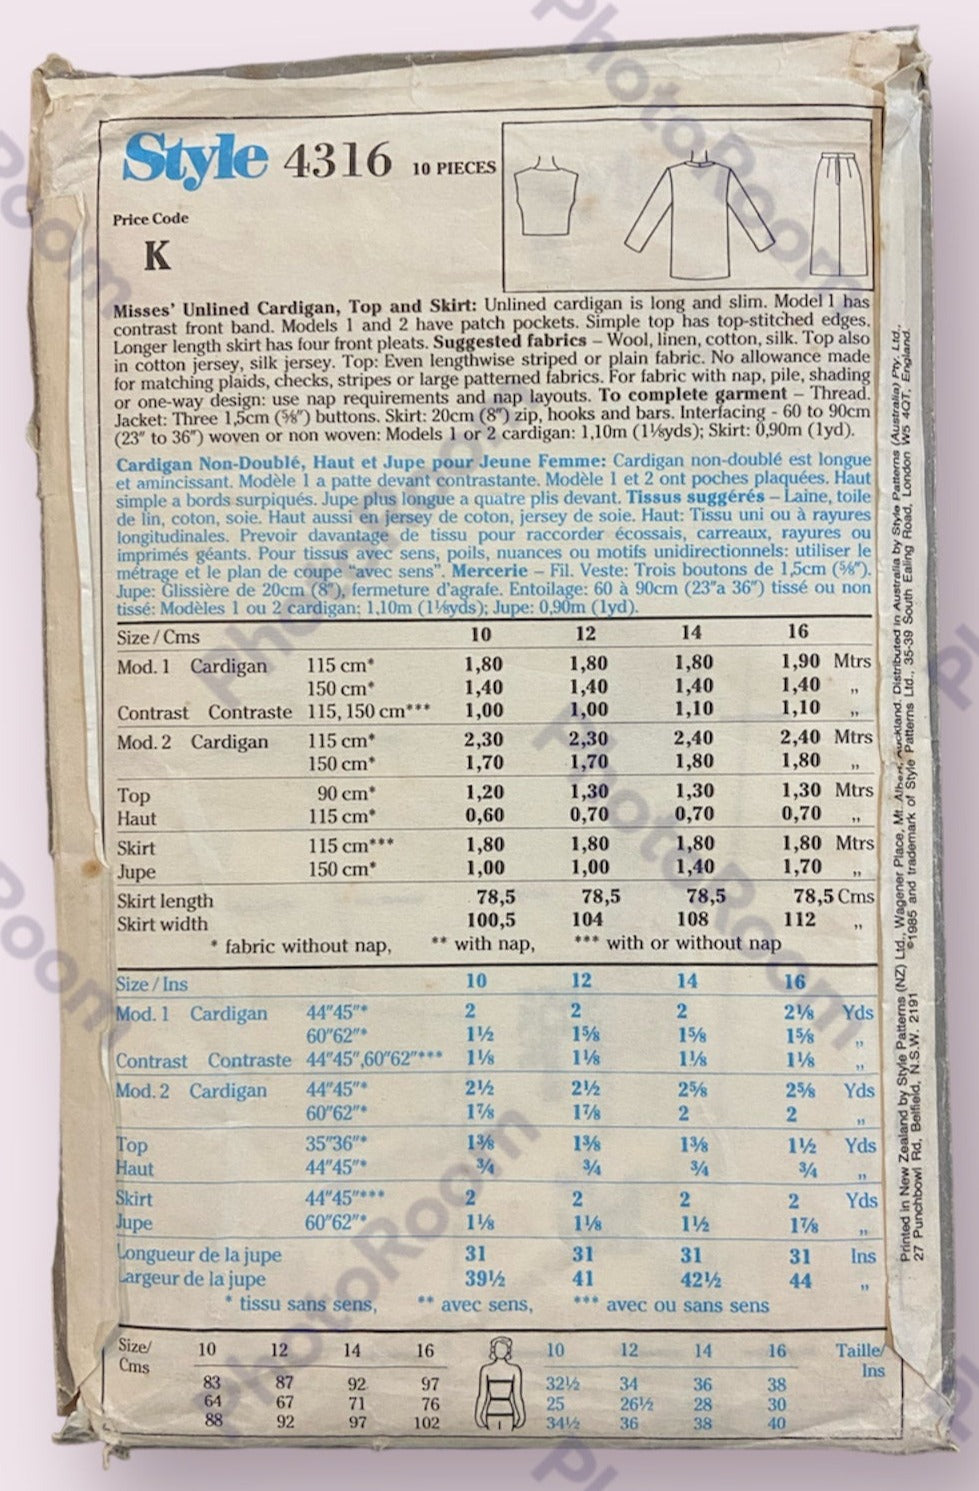 Style 4316 10 PIECES
Price Code
K
Misses' Unlined Cardigan, Top and Skirt: Unlined cardigan is long and slim. Model 1 has
contrast front band. Models 1 and 2 have patch pockets. Simple top has top-stitched edges.
Longer length skirt has four front pleats. Suggested fabrics – Wool, linen, cotton, silk. Top also
in cotton jersey, silk jersey. Top: Even lengthwise striped or plain fabric. No allowance made
for matching plaids, checks, stripes or large patterned fabrics. For fabric with nap, pile, shading
or one-way design: use nap requirements and nap layouts. To complete garment – Thread.
Jacket: Three 1,5cm (⅝") buttons. Skirt: 20cm (8") zip, hooks and bars. Interfacing - 60 to 90cm
(23" to 36") woven or non woven: Models 1 or 2 cardigan: 1,10m (1⅛yds); Skirt: 0,90m (1yd).
Cardigan Non-Doublé, Haut et Jupe pour Jeune Femme: Cardigan non-doublé est longue
et amincissant. Modèle 1 a patte devant contrastante. Modèle 1 et 2 ont poches plaquées. Haut
simple a bords surpiqués. Jupe plus longue a quatre plis devant. Tissus suggérés – Laine, toile
de lin, coton, soie. Haut aussi en jersey de coton, jersey de soie. Haut: Tissu uni ou à rayures
longitudinales. Prevoir davantage de tissu pour raccorder écossais, carreaux, rayures ou
imprimés géants. Pour tissus avec sens, poils, nuances ou motifs unidirectionnels: utiliser le
métrage et le plan de coupe "avec sens". Mercerie – Fil. Veste: Trois boutons de 1,5cm (⅝").
Jupe: Glissière de 20cm (8"), fermeture d'agrafe. Entoilage: 60 à 90cm (23"a 36") tissé ou non
tissé: Modèles 1 ou 2 cardigan: 1,10m (1⅛yds); Jupe: 0,90m (1yd).
Size / Cms 10 12 14 16
Mod. 1 Cardigan 115 cm* 1,80 1,80 1,80 1,90 Mtrs
150 cm* 1,40 1,40 1,40 1,40 ,,
Contrast Contraste 115, 150 cm*** 1,00 1,00 1,10 1,10 ,,
Mod. 2 Cardigan 115 cm* 2,30 2,30 2,40 2,40 Mtrs
150 cm* 1,70 1,70 1,80 1,80 ,,
Top 90 cm* 1,20 1,30 1,30 1,30 Mtrs
Haut 115 cm* 0,60 0,70 0,70 0,70 ,,
Skirt 115 cm*** 1,80 1,80 1,80 1,80 Mtrs
Jupe 150 cm* 1,00 1,00 1,40 1,70 ,,
Skirt length 78,5 78,5 78,5 78,5 Cms
Skirt width 100,5 104 108 112 ,,
* fabric without nap, ** with nap, *** with or without nap
Size / Ins 10 12 14 16
Mod. 1 Cardigan 44"45"* 2 2 2 2⅛ Yds
60"62"* 1½ 1⅝ 1⅝ 1⅝ ,,
Contrast Contraste 44"45",60"62"*** 1⅛ 1⅛ 1⅛ 1⅛ ,,
Mod. 2 Cardigan 44"45"* 2½ 2½ 2⅝ 2⅝ Yds
60"62"* 1⅞ 1⅞ 2 2 ,,
Top 35"36"* 1⅜ 1⅜ 1⅜ 1½ Yds
Haut 44"45"* ¾ ¾ ¾ ¾ ,,
Skirt 44"45"*** 2 2 2 2 Yds
Jupe 60"62"* 1⅛ 1⅛ 1½ 1⅞ ,,
Longueur de la jupe 31 31 31 31 Ins
Largeur de la jupe 39½ 41 42½ 44 ,,
* tissu sans sens, ** avec sens, *** avec ou sans sens
Size/ 10 12 14 16 10 12 14 16 Taille/
Cms Ins
83 87 92 97 32½ 34 36 38
64 67 71 76 25 26½ 28 30
88 92 97 102 34½ 36 38 40
Printed in New Zealand by Style Patterns (NZ) Ltd., Wagener Place, Mt. Albert, Auckland. Distributed in Australia by Style Patterns (Australia) Pty. Ltd.
27 Punchbowl Rd, Belfield, N.S.W. 2191 ©1985 and trademark of Style Patterns Ltd., 35-39 South Ealing Road, London W5 4QT, England.
PhotoRoom
PhotoRoom
PhotoRoom
PhotoRoom
PhotoRoom
PhotoRoom